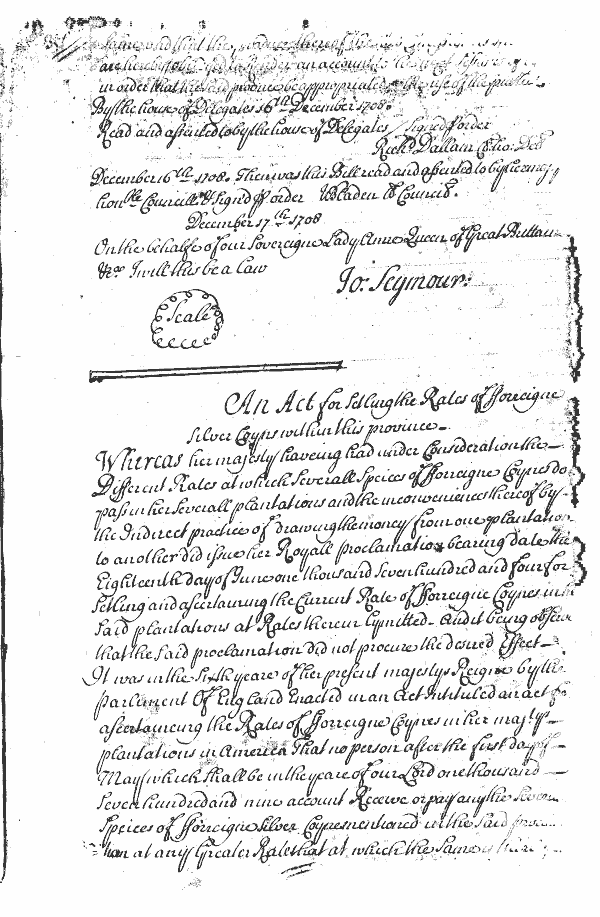 same and that the produce thereof
are hereby
in order that the said produce be appropriated to the use of the publick
By the house of Delegates 16th December 1708.
Read and assented to by the house of Delegates Signed p order
Richd Dallam Clk ho: Del
December 16th 1708. Then was this Bill read and assented to by her majtys
honble Councill & Signd p order WBladen Cl Council.
December 17th 1708
On the behalfe of our Sovereigne Lady Anne Queen of Great Brittain
&ca I will this be a Law
Jo: Seymour:
Seale
An Act for setling the Rates of fforreigne
silver Coyns within this province
Whereas her majesty haveing had under Consideration the
Different Rates at which Severall Speices of fforreigne Coynes do
pass in her Severall plantations and the inconveniences thereof by
the Indirect practice of drawing the money from one plantation
to another did issue her Royall proclamation bearing date the
Eighteenth day of June one thousand Seven hundred and four for
Setling and ascertaining the Current Rate of fforreigne Coynes in
Said plantations at Rates therein Lymitted. And it being observ
that the Said proclamation did not procure the desired Effect
It was in the Sixth yeare of her present majestys Reigne by the
Parliment Of England Enacted in an Act Intituled an act for
ascertaineing the Rates of fforreigne Coynes in her majtys
plantations in America That no person after the first day of
May which Shall be in the yeare of our Lord one thousand
Seven hundred and nine account Receive or pay any the Severall
Speices of fforreigne Silver Coynes mentioned in the Said
tion at any Greater Rate that at which the Same is